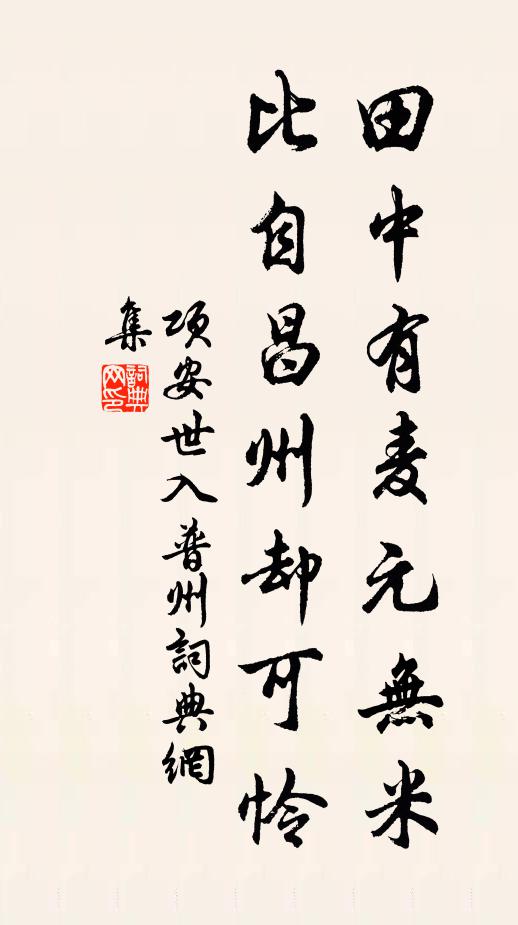 田中有麦元無米
比自昌州却可怜
项安世入普州詞典網
集
詞典网印